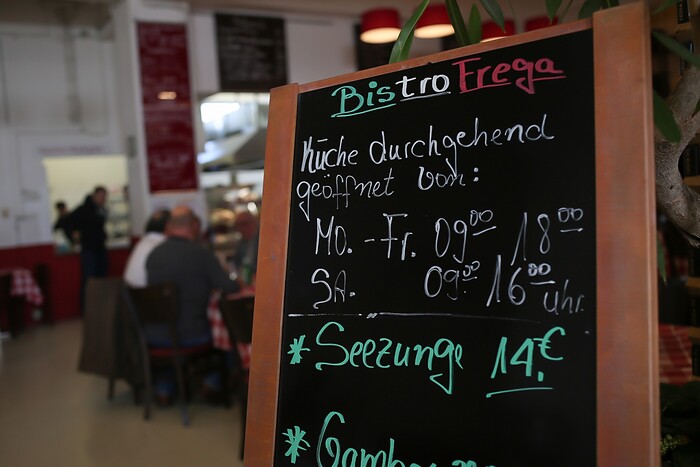 Bistro Frega
Küche durchgehend
geöffnet von:
Mo. - Fr. 09⁰⁰ 18⁰⁰
SA. 09⁰⁰ 16⁰⁰ uhr
* Seezunge 14,€
*